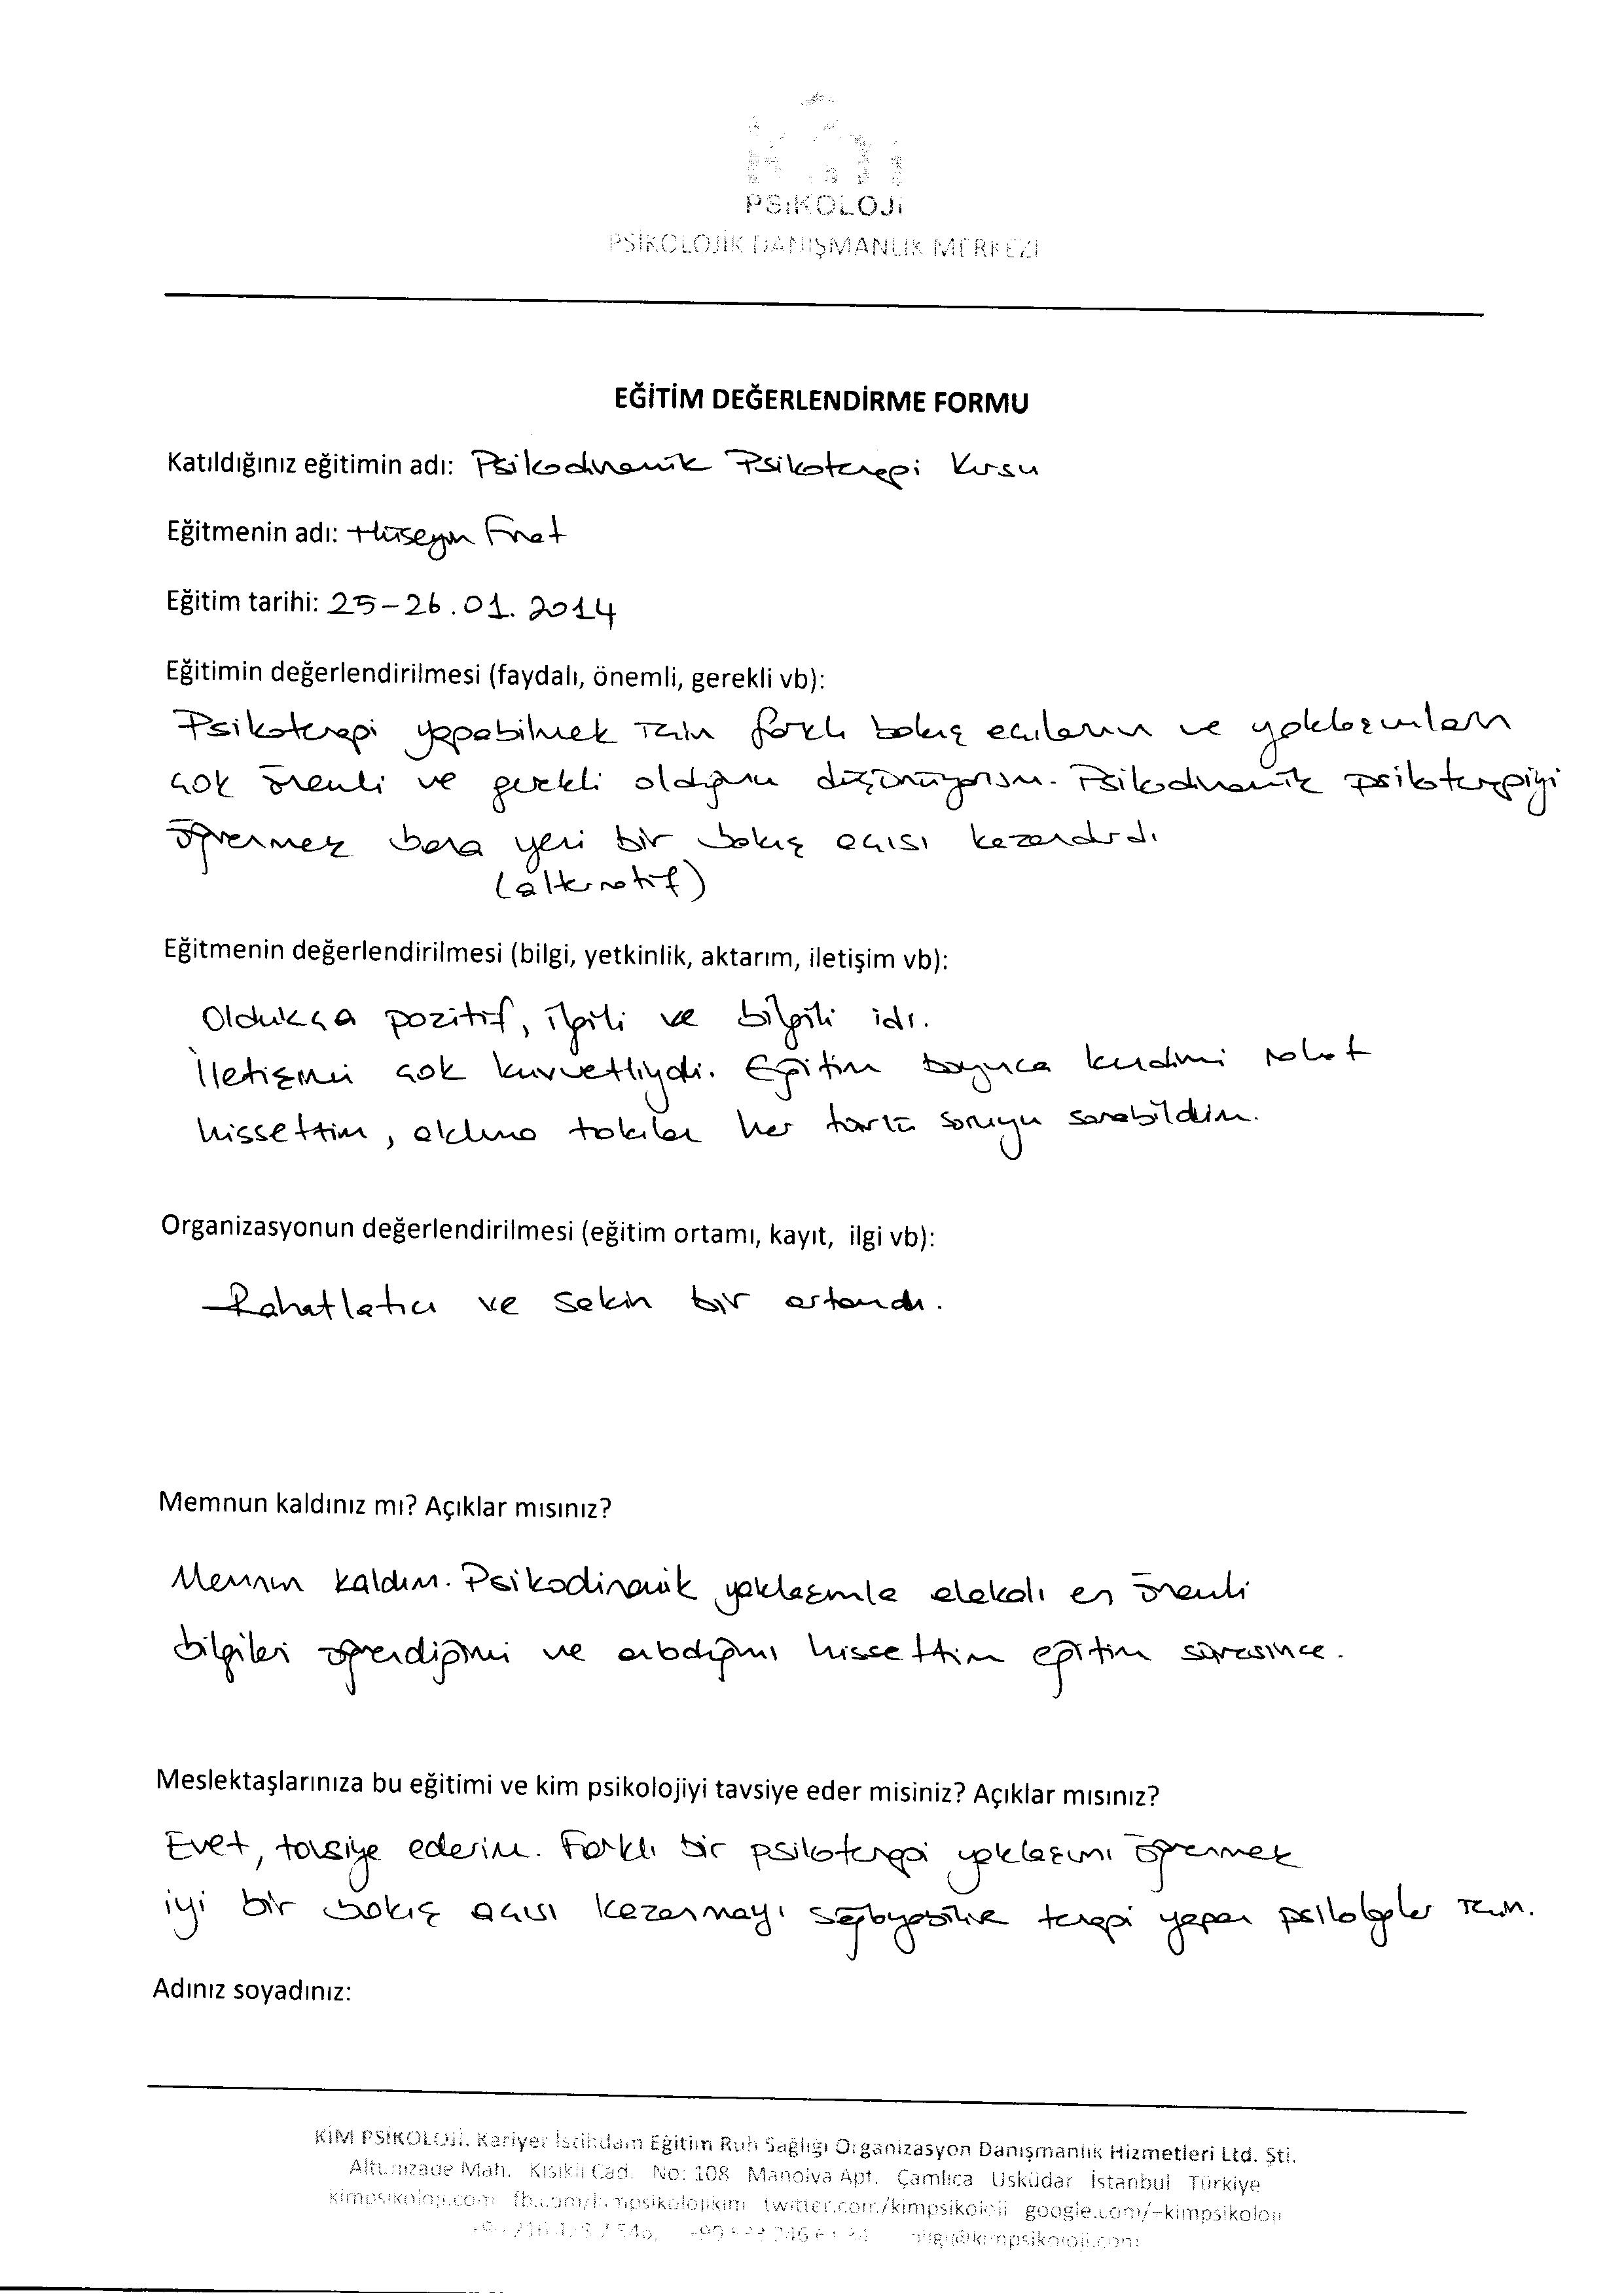 kim
PSİKOLOJİ
PSİKOLOJİK DANIŞMANLIK MERKEZİ
EĞİTİM DEĞERLENDİRME FORMU
Katıldığınız eğitimin adı: Psikodinamik Psikoterapi Kursu
Eğitmenin adı: Hüseyin Fırat
Eğitim tarihi: 25-26.01.2014
Eğitimin değerlendirilmesi (faydalı, önemli, gerekli vb):
Psikoterapi yapabilmek için farklı bakış açılarının ve yaklaşımların
çok önemli ve gerekli olduğunu düşünüyorum. Psikodinamik psikoterapiyi
öğrenmek bana yeni bir bakış açısı kazandırdı
(alternatif)
Eğitmenin değerlendirilmesi (bilgi, yetkinlik, aktarım, iletişim vb):
Oldukça pozitif, ilgili ve bilgili idi.
İletişimi çok kuvvetliydi. Eğitim boyunca kendimi rahat
hissettim, aklıma takılan her türlü soruyu sorabildim.
Organizasyonun değerlendirilmesi (eğitim ortamı, kayıt, ilgi vb):
Rahatlatıcı ve sakin bir ortamdı.
Memnun kaldınız mı? Açıklar mısınız?
Memnun kaldım. Psikodinamik yaklaşımla alakalı en önemli
bilgileri öğrendiğimi ve anladığımı hissettim eğitim süresince.
Meslektaşlarınıza bu eğitimi ve kim psikolojiyi tavsiye eder misiniz? Açıklar mısınız?
Evet, tavsiye ederim. Farklı bir psikoterapi yaklaşımı öğrenmek
iyi bir bakış açısı kazanmayı sağlayabilir terapi yapan psikologlar için.
Adınız soyadınız:
KİM PSİKOLOJİ. Kariyer İstihdam Eğitim Ruh Sağlığı Organizasyon Danışmanlık Hizmetleri Ltd. Şti.
Altunizade Mah. Kısıklı Cad. No: 108 Manolya Apt. Çamlıca Üsküdar İstanbul Türkiye
kimpsikoloji.com fb.com/kimpsikolojikim twitter.com/kimpsikoloji google.com/+kimpsikoloji
bilgi@kimpsikoloji.com